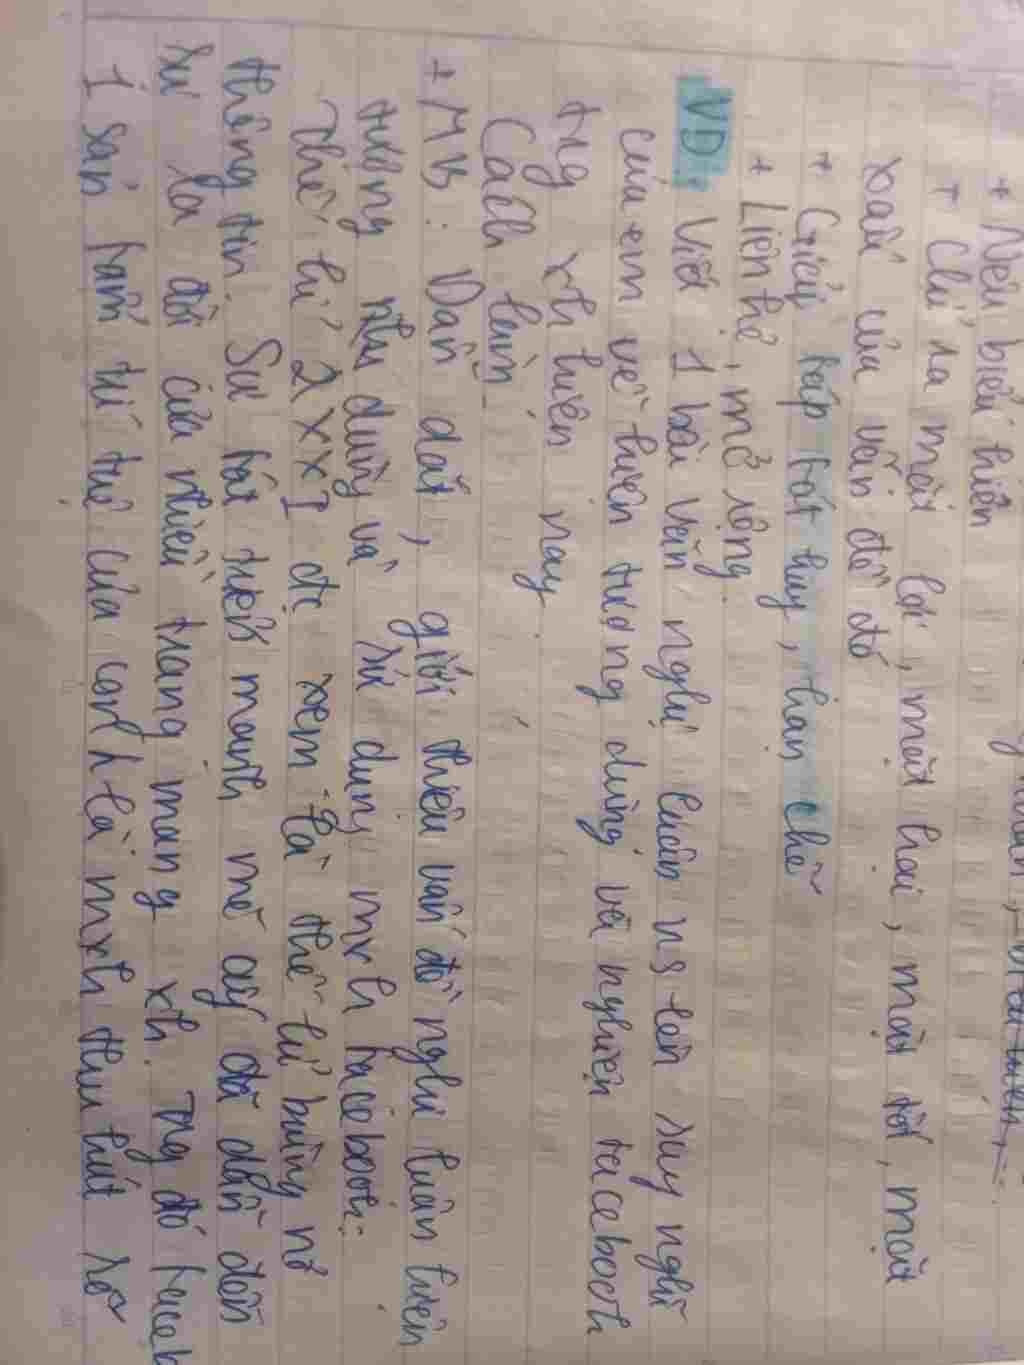 + Nêu biểu hiện
+ Chỉ ra mặt lợi, mặt hại, mặt tốt, mặt
xấu của vấn đề đó
+ Giải páp pát huy, hạn chế
+ Liên hệ, mở rộng.
VD: Viết 1 bài văn nghị luận ns lên suy nghĩ
của em về hiện tượng dùng và nghiện facebook
trg xh hiện nay.
Cách làm
+ MB: Dẫn dắt, giới thiệu vấn đề nghị luận hiện
tượng nhu dùng và sử dụng mxh facebook:
Thế kỉ XXI đc xem là thế kỉ bùng nổ
thông tin. Sự pát triển mạnh mẽ ấy đã dẫn đến
sự ra đời của nhiều trang mạng xh. Trg đó faceb
1 sản pẩm trí tuệ của con là mxh thu hút số